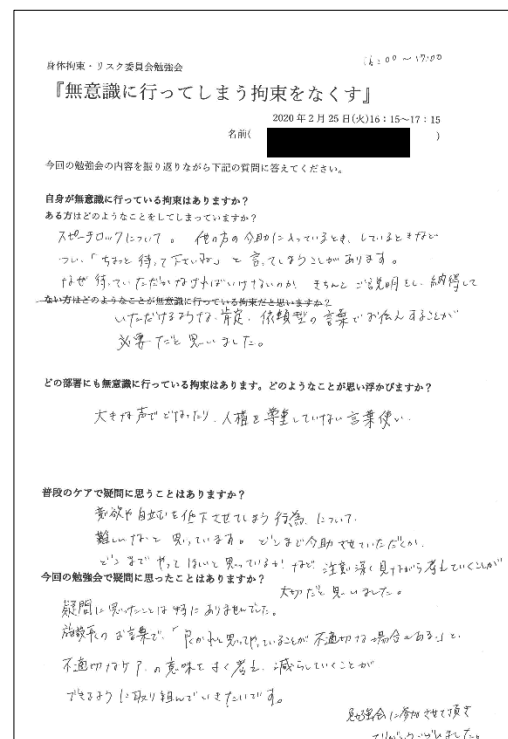 16:00～17:00
身体拘束・リスク委員会勉強会
『無意識に行ってしまう拘束をなくす』
2020年2月25日(火)16：15～17：15
名前( )
今回の勉強会の内容を振り返りながら下記の質問に答えてください。
自身が無意識に行っている拘束はありますか？
ある方はどのようなことをしてしまっていますか？
スピーチロックについて。他の方の介助に入っているとき、しているときなど
つい、「ちょっと待って下さいね」と言ってしまうことがあります。
なぜ待っていただかなければいけないのか、きちんとご説明をし、納得して
ない方はどのようなことが無意識に行っている拘束だと思いますか？
いただけるような、肯定、依頼型の言葉でお伝えすることが
必要だと思いました。
どの部署にも無意識に行っている拘束はあります。どのようなことが思い浮かびますか？
大きな声でどなったり、人権を尊重していない言葉使い。
普段のケアで疑問に思うことはありますか？
意欲や自立心を低下させてしまう行為、について、
難しいなと思っています。どこまで介助させていただくか、
どこまでやってほしいと思っているか など 注意深く見ながら考えていくことが
今回の勉強会で疑問に思ったことはありますか？
大切だと思いました。
疑問に思ったことは特にありませんでした。
施設長のお言葉で、「良かれと思ってやっていることが不適切な場合もある」と、
不適切なケアの意味をよく考え、減らしていくことが
できるように取り組んでいきたいです。
勉強会に参加させて頂き
ありがとうございました。